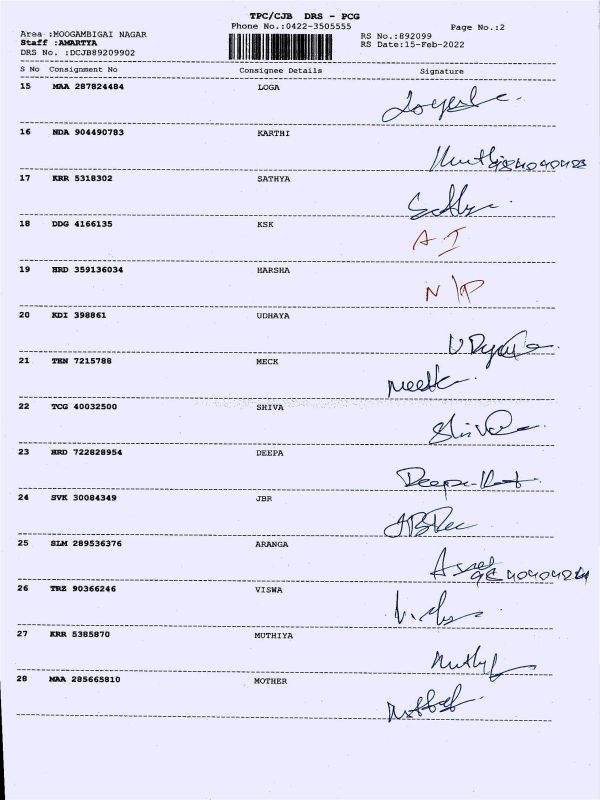 TPC/CJB DRS - PCG
Phone No.:0422-3505555
Page No.:2
Area :MOOGAMBIGAI NAGAR
Staff :AMARTYA
DRS No. :DCJB89209902
RS No.:892099
RS Date:15-Feb-2022
S No Consignment No Consignee Details Signature
15 MAA 287824484 LOGA
16 NDA 904490783 KARTHI
17 KRR 5318302 SATHYA
18 DDG 4166135 KSK A-I
19 HRD 359136034 HARSHA N/P
20 KDI 398861 UDHAYA
21 TEN 7215788 MECK
22 TCG 40032500 SHIVA Shiva
23 HRD 722828954 DEEPA
24 SVK 30084349 JBR
25 SLM 289536376 ARANGA
26 TRZ 90366246 VISWA
27 KRR 5385870 MUTHIYA
28 MAA 285665810 MOTHER